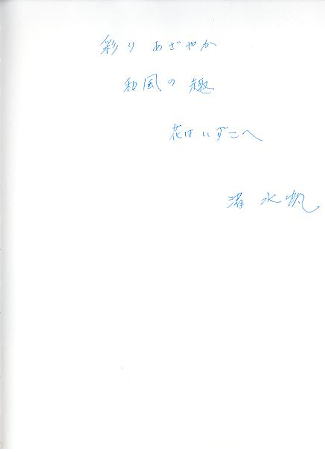 彩りあざやか
和風の趣
花はいずこへ
渚 水帆